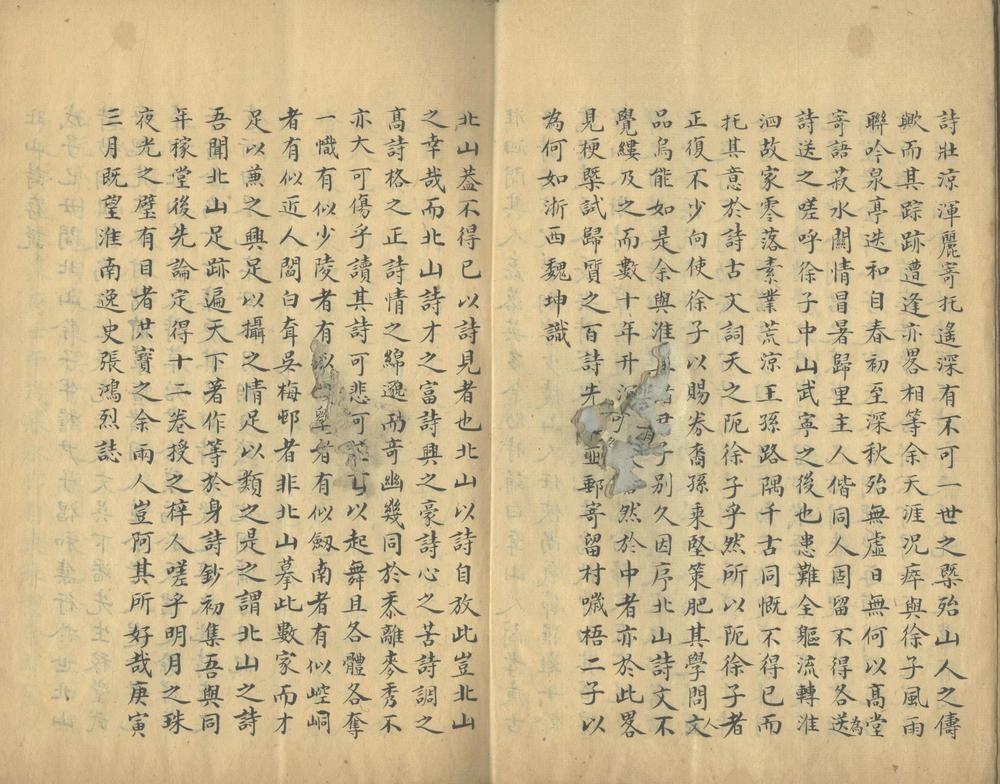 詩壯涼渾麗寄托遙深有不可一世之槩殆山人之儔
歟而其踪跡遭逢亦畧相等余天涯况瘁與徐子風雨
聯吟泉亭迭和自春初至深秋殆無虛日無何以高堂
寄語菽水關情冒暑歸里主人偕同人固留不得各送為
詩送之嗟呼徐子中山武寧之後也患難全軀流轉淮
泗故家零落素業荒涼王孫路隅千古同慨不得已而
托其意於詩古文詞天之阨徐子乎然所以阨徐子者
正復不少向使徐子以賜劵喬孫乘堅策肥其學問文人
品烏能如是余與淮子別久因序北山詩文不
覺縷及之而數十年升然於中者亦於此畧
見梗槩試歸質之百詩先郵寄留村嘰梧二子以
為何如浙西魏坤識
北山葢不得已以詩見者也北山以詩自放此豈北山
之幸哉而北山詩才之富詩興之豪詩心之苦詩調之
高詩格之正詩情之綿邈勁奇幽幾同於黍離麥秀不
亦大可傷乎讀其詩可悲可以起舞且各體各奪
一幟有似少陵者有者有似劔南者有似崆峒
者有似近人閻白耷吳梅邨者非北山摹此數家而才
足以兼之興足以攝之情足以類之是之謂北山之詩
吾聞北山足跡遍天下著作等於身詩鈔初集吾與同
年稼堂後先論定得十二卷授之梓人嗟乎明月之珠
夜光之璧有目者共寶之余兩人豈阿其所好哉庚寅
三月既望淮南逸史張鴻烈誌